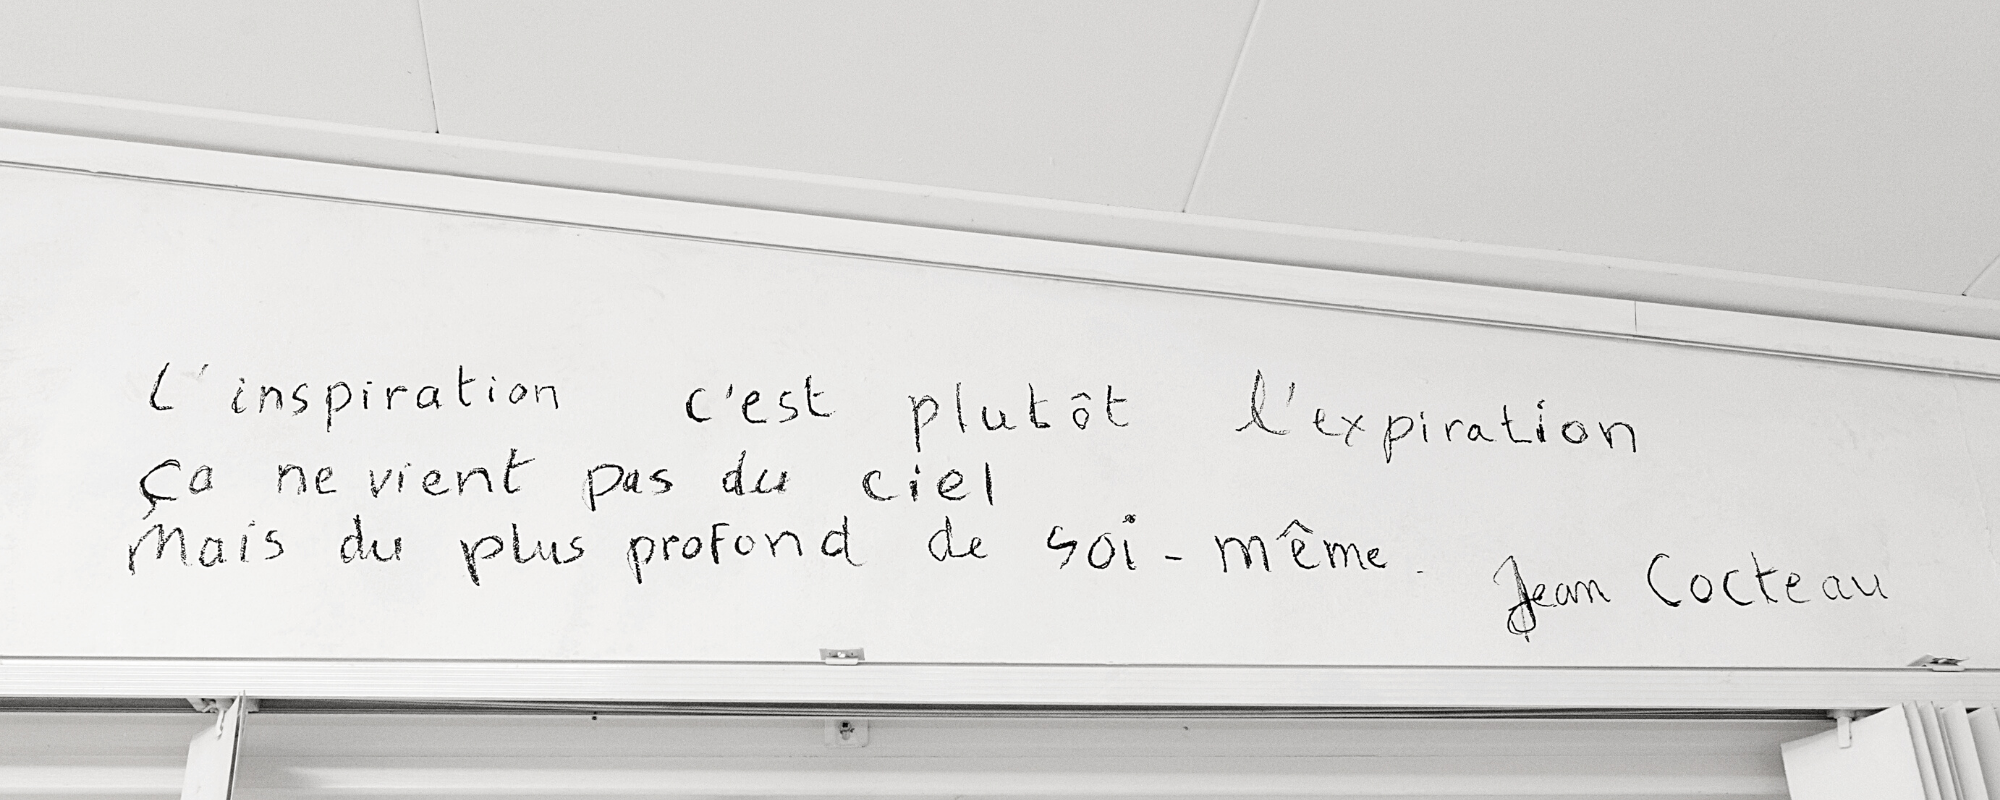 L'inspiration c'est plutôt l'expiration
ça ne vient pas du ciel
Mais du plus profond de soi-même.
Jean Cocteau